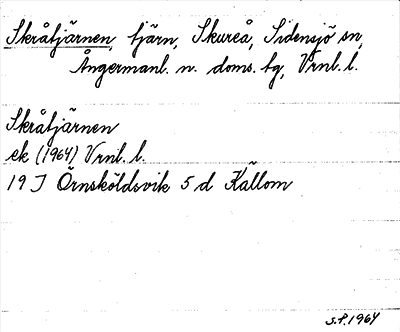 Skråtjärnen, tjärn, Skureå, Sidensjö sn,
Ångermanl. n. doms. tg, Vrnl. l.
Skråtjärnen
ek (1964) Vrnl. l.
19 J Örnsköldsvik 5 d Källom
S.F. 1964